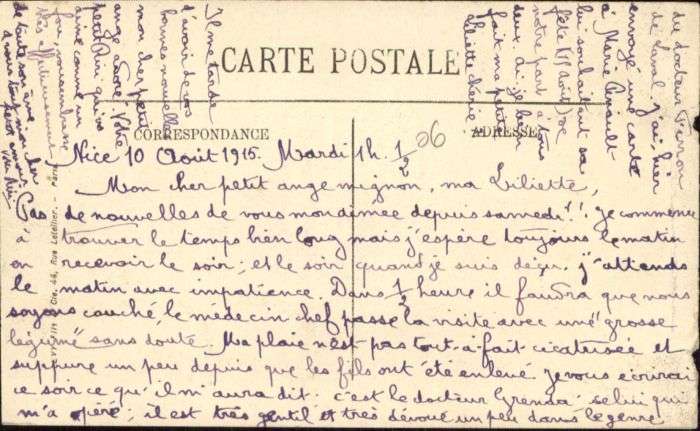 CARTE POSTALE
CORRESPONDANCE
ADRESSE
Nice 10 Août 1915. Mardi 1h. 1/2
Mon cher petit ange mignon, ma Liliette,
Pas de nouvelles de vous mon aimée depuis samedi!! Je commence
à trouver le temps bien long mais j'espère toujours le matin
en recevoir le soir; et le soir quand je suis déçu j'attends
le matin avec impatience. Dans 1/2 heure il faudra que nous
soyons couché, le médecin chef passe la visite avec une "grosse
légume" sans doute. Ma plaie n'est pas tout-à-fait cicatrisée et
suppure un peu depuis que les fils ont été enlevé. Je vous écrirai
ce soir ce qu'il m'aura dit. c'est le docteur Grenda selui qui
m'a opéré; il est très gentil et très dévoué un peu dans le genre
du docteur Perron
de Laval. J'ai, hier
envoyé une carte
à Marie
lui souhaitant sa
fête (15 Août) de
notre part à tous
deux. Ai-je bien
fait ma petite
Liliette chérie
Il me tarde
d'avoir de vos
bonnes nouvelles
mon cher petit
ange adoré. Votre
petit Riri qui vs
aime comme un
fou, vs embrasse
de toute son âme
26